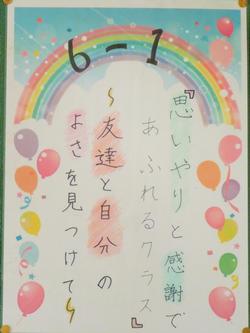 6-1
『思いやりと感謝で
あふれるクラス』
~友達と自分の
よさを見つけて~